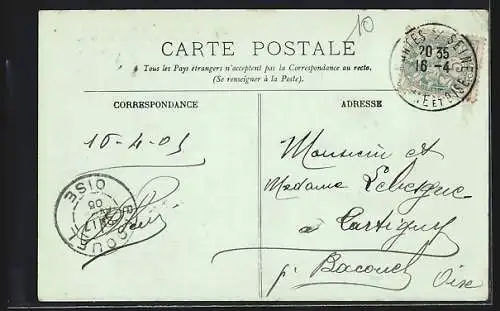 10
CARTE POSTALE
Tous les Pays étrangers n'acceptent pas la Correspondance au recto.
(Se renseigner à la Poste).
CORRESPONDANCE
ADRESSE
20 35
16 - 4
SEINE
ET OISE
16-4-05
Monsieur et
Madame Lebesgue
à Cartigny
pr Bacouel
Oise
OISE
05